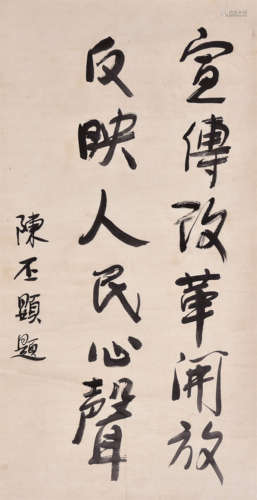 宣傳改革開放
反映人民心聲
陳丕顯題